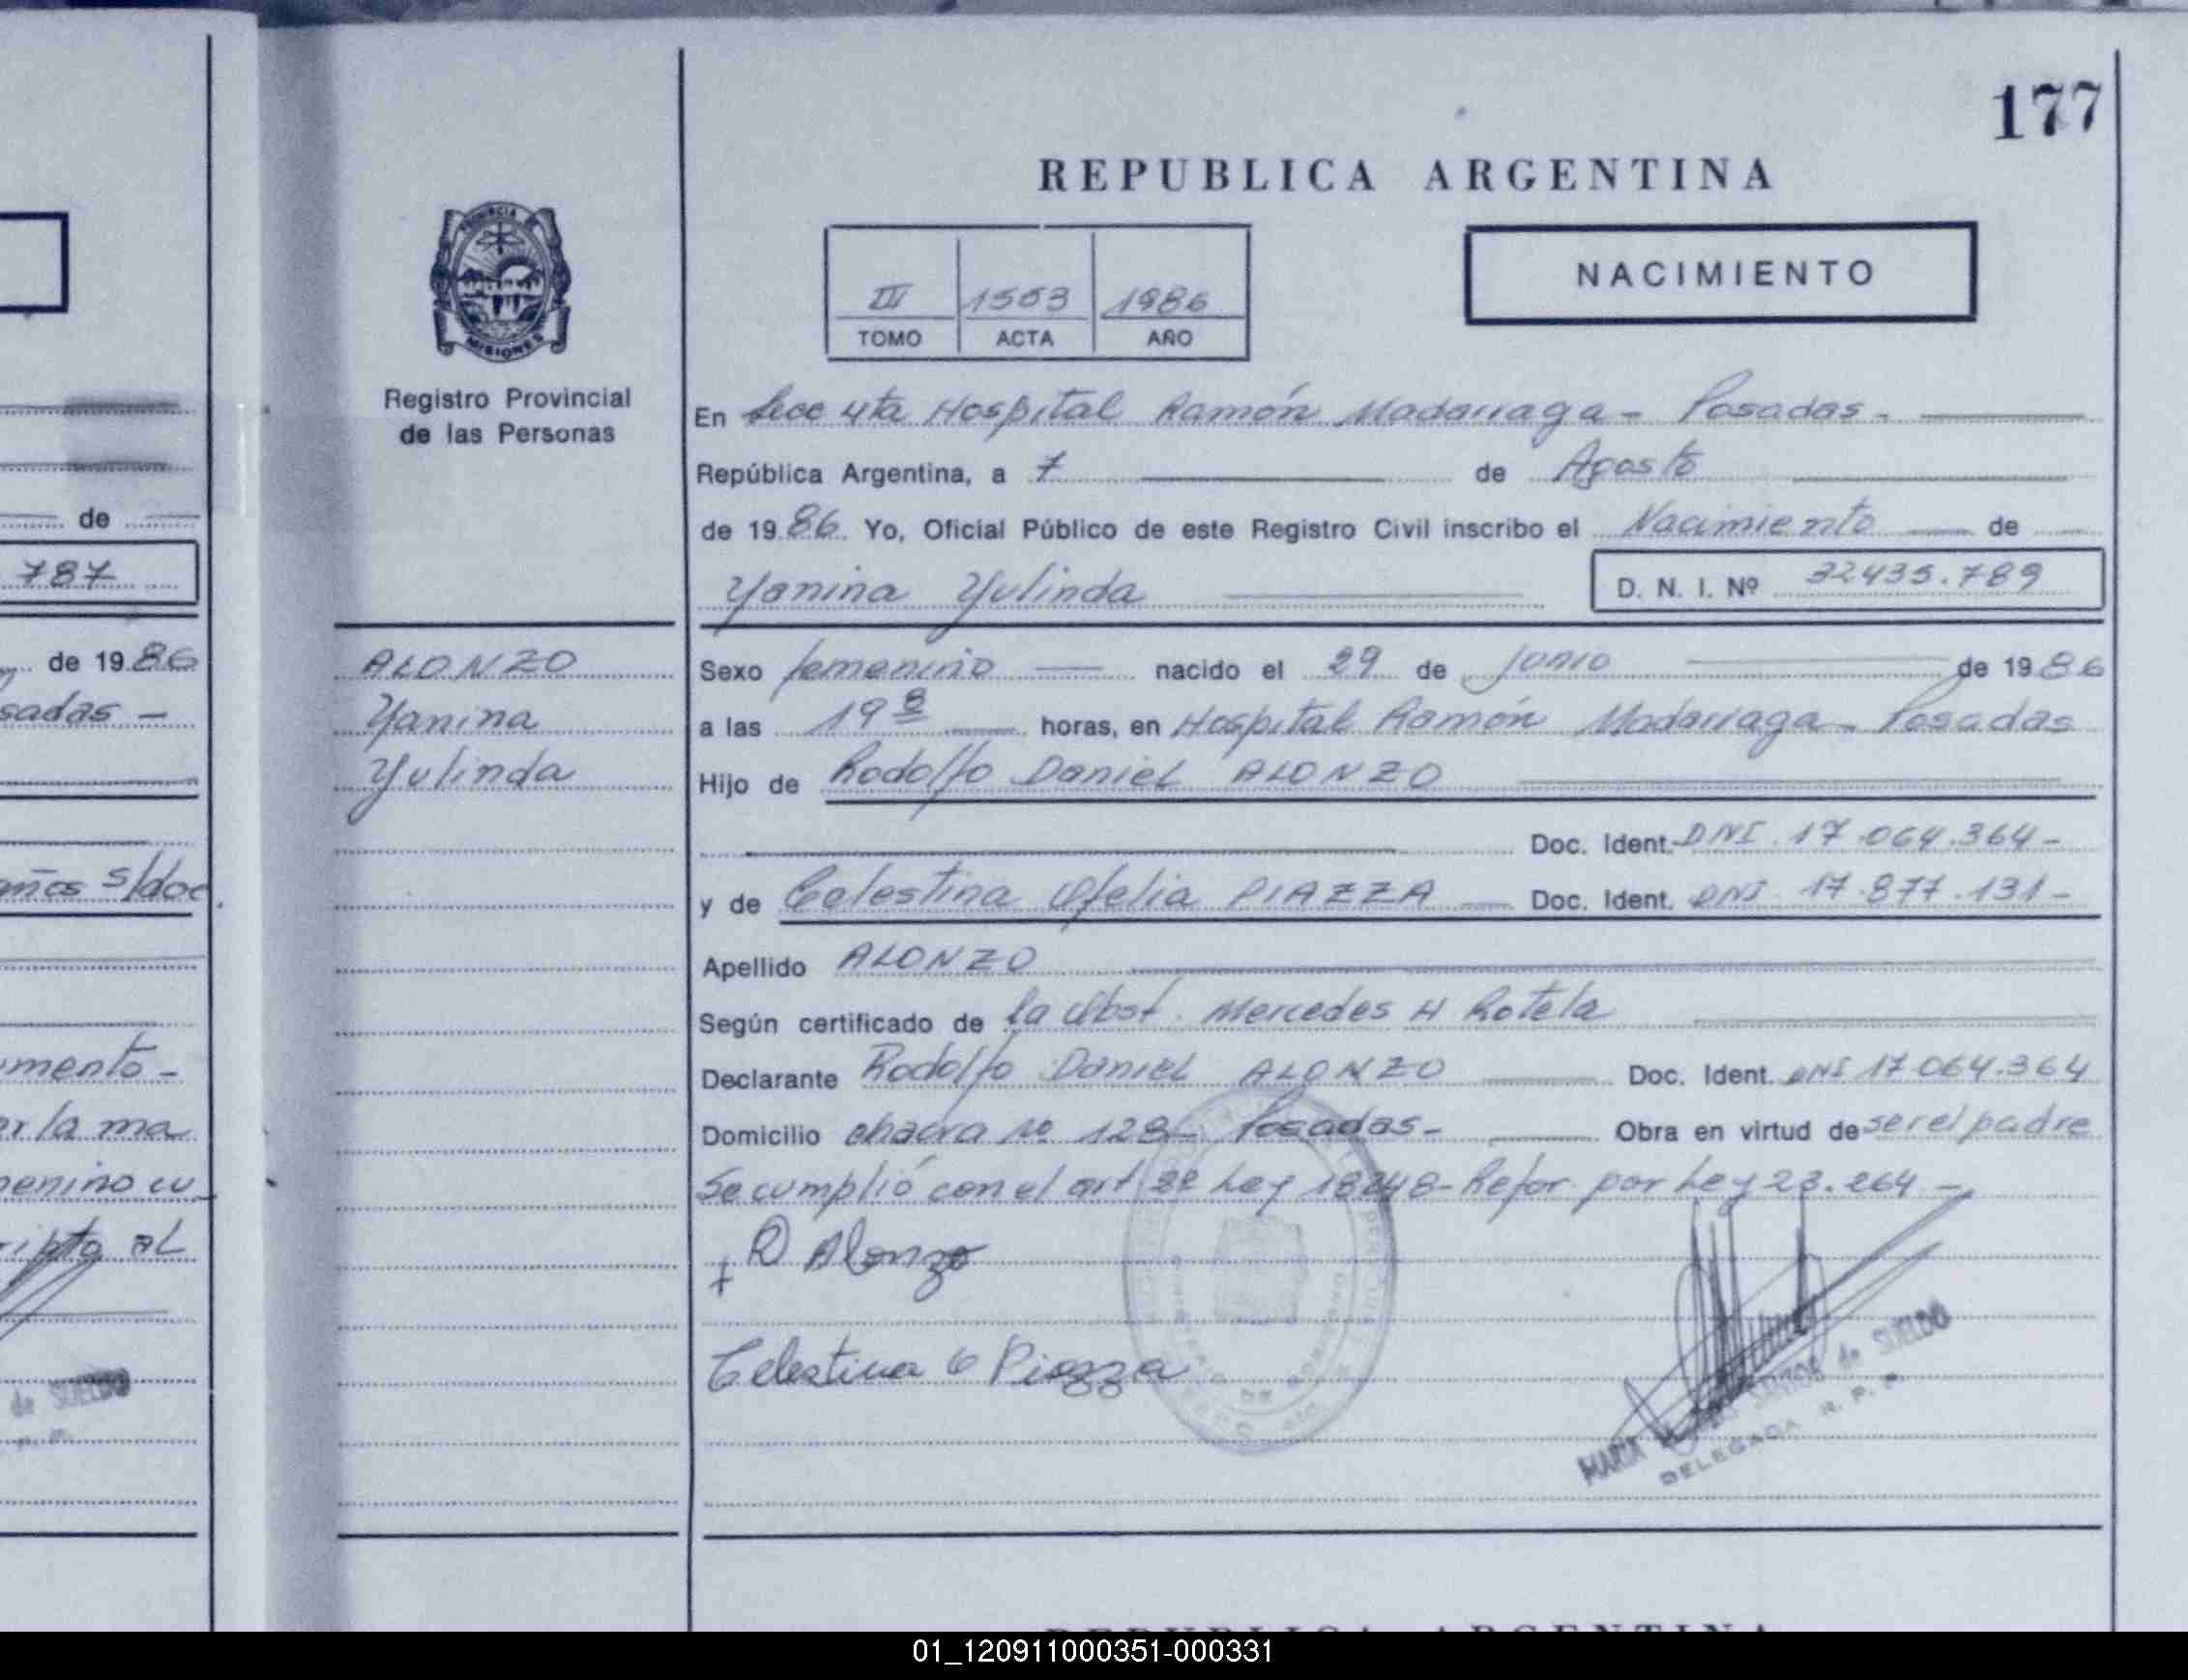 177
REPUBLICA ARGENTINA
PROVINCIA DE
MISIONES
Registro Provincial
de las Personas
III 1563 1986
TOMO ACTA AÑO
NACIMIENTO
En Secc 4ta Hospital Ramón Madariaga - Posadas -
República Argentina, a 7 de Agosto
de 1986. Yo, Oficial Público de este Registro Civil inscribo el Nacimiento de
Yanina Yulinda D. N. I. Nº 32435.789
ALONZO
Yanina
Yulinda
Sexo femenino nacido el 29 de Junio de 1986
a las 19 horas, en Hospital Ramón Madariaga - Posadas
Hijo de Rodolfo Daniel ALONZO
Doc. Ident. DNI 17.064.364-
y de Celestina Ofelia PIAZZA Doc. Ident. DNI 17.877.131-
Apellido ALONZO
Según certificado de la Obst. Mercedes H Rotela
Declarante Rodolfo Daniel ALONZO Doc. Ident. DNI 17.064.364
Domicilio chacra No 128- Posadas- Obra en virtud de ser el padre
Se cumplió con el art 2º Ley 18248- Refor. por Ley 23.264 -
R Alonzo
Celestina O Piazza
MARIA SANTOS de SUELDO
DELEGADA R. P. P.
de
787
de 1986
sadas -
años s/doc.
umento -
or la ma
menino cu
ripto al
de SUELDO
REPUBLICA ARGENTINA
01_120911000351-000331